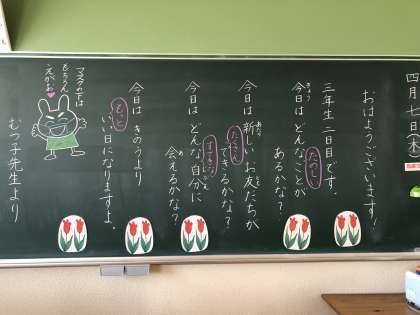 四月七日(木)
おはようございます!
三年生 二日目です。
今日は どんな たのしい ことが
あるかな?
今日は 新しい お友だちが
たくさん できるかな?
今日は どんな すてきな 自分に
会えるかな?
今日は きのうより
もっと いい日になりますよ。
マスクの下は
もちろん
えがお♥
むつ子先生より